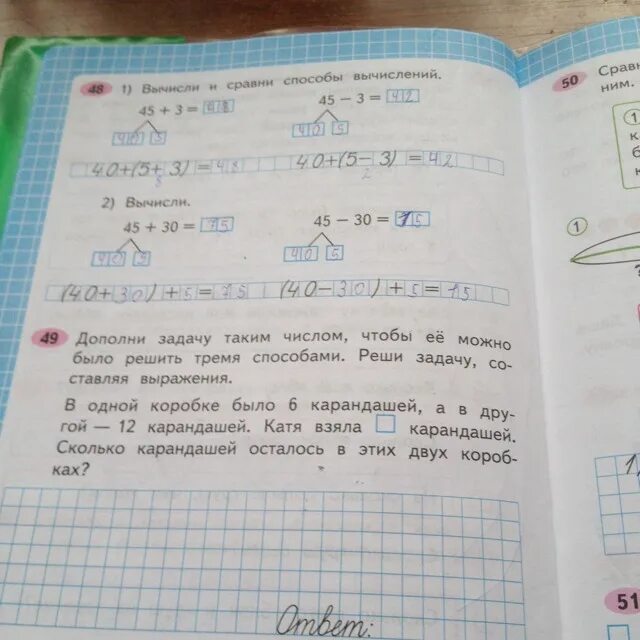 48 1) Вычисли и сравни способы вычислений.
45 + 3 = 48 45 − 3 = 42
40 5
40 5
40+(5+3)=48 40+(5−3)=42
8 2
2) Вычисли.
45 + 30 = 75 45 − 30 = 15
40 5
40 5
(40+30)+5=75 (40−30)+5=15
49 Дополни задачу таким числом, чтобы её можно
было решить тремя способами. Реши задачу, со-
ставляя выражения.
В одной коробке было 6 карандашей, а в дру-
гой — 12 карандашей. Катя взяла карандашей.
Сколько карандашей осталось в этих двух короб-
ках?
Ответ:
50 Сравн
ним.
1
к
б
к
1
51